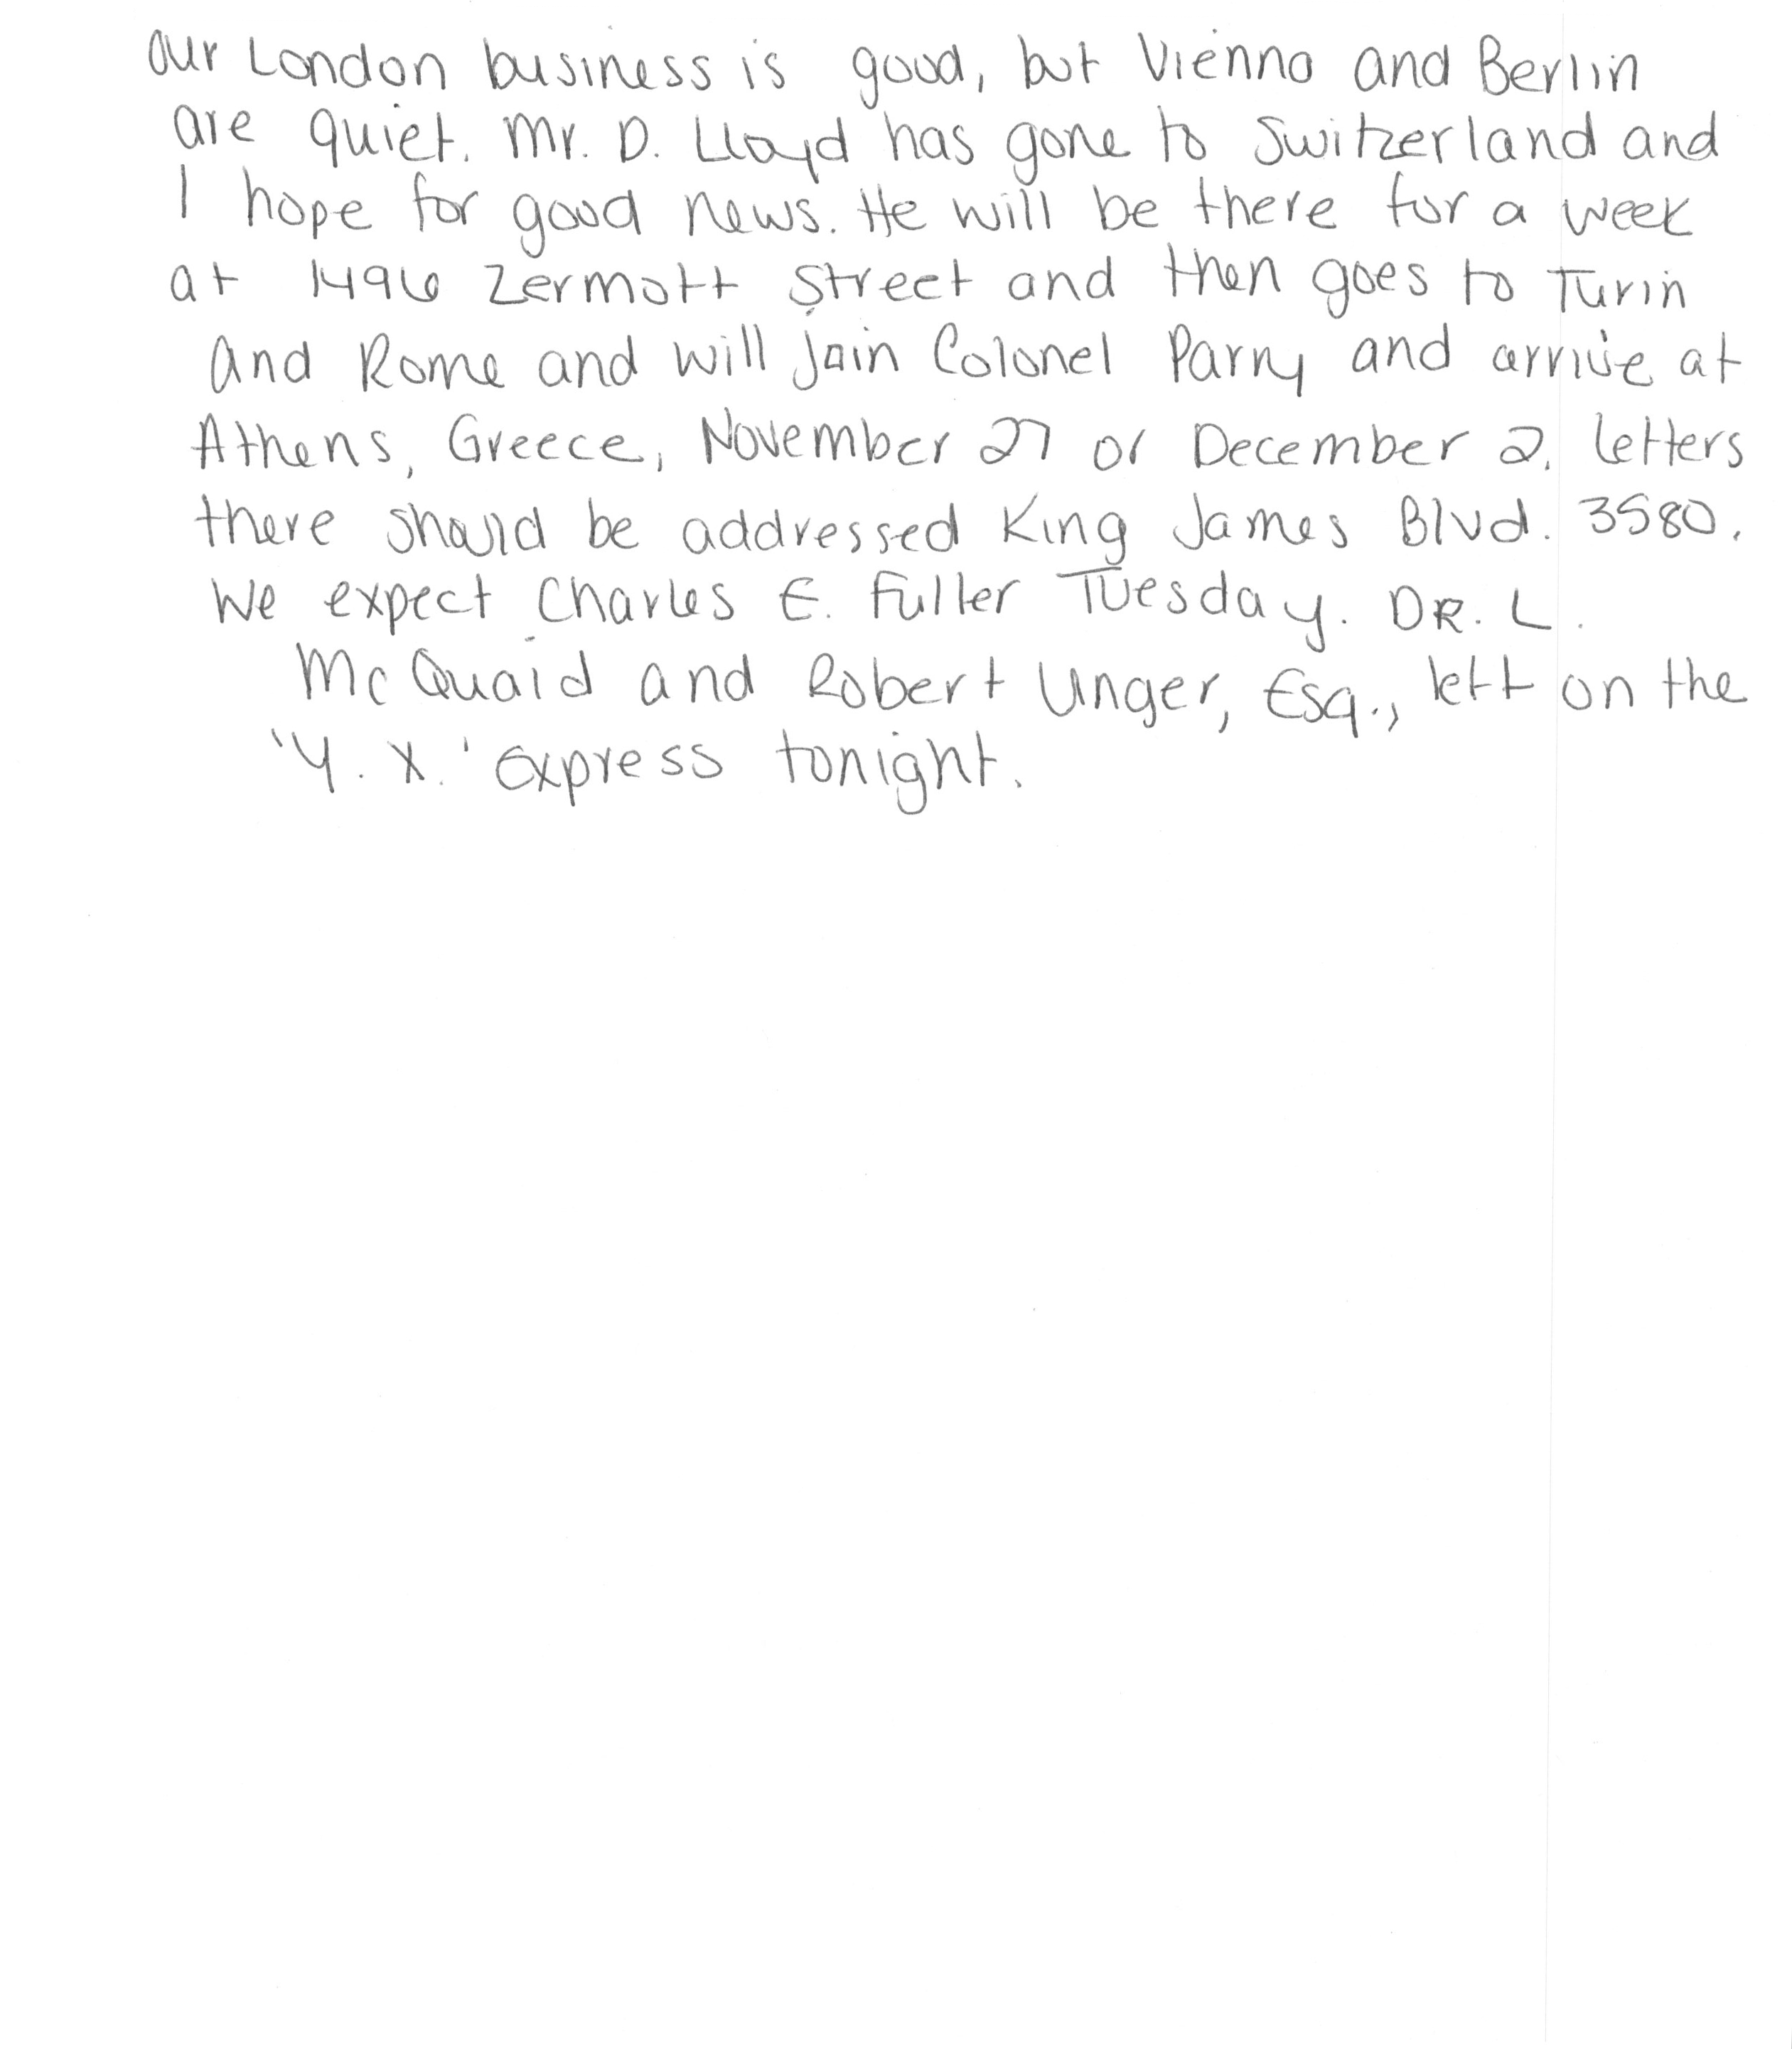 Our London business is good, but Vienna and Berlin
are quiet. Mr. D. Lloyd has gone to Switzerland and
I hope for good news. He will be there for a week
at 1496 Zermott Street and then goes to Turin
and Rome and will join Colonel Parry and arrive at
Athens, Greece, November 27 or December 2. Letters
there should be addressed King James Blvd. 3580.
We expect Charles E. Fuller Tuesday. DR. L.
McQuaid and Robert Unger, Esq., left on the
'Y. X.' Express tonight.